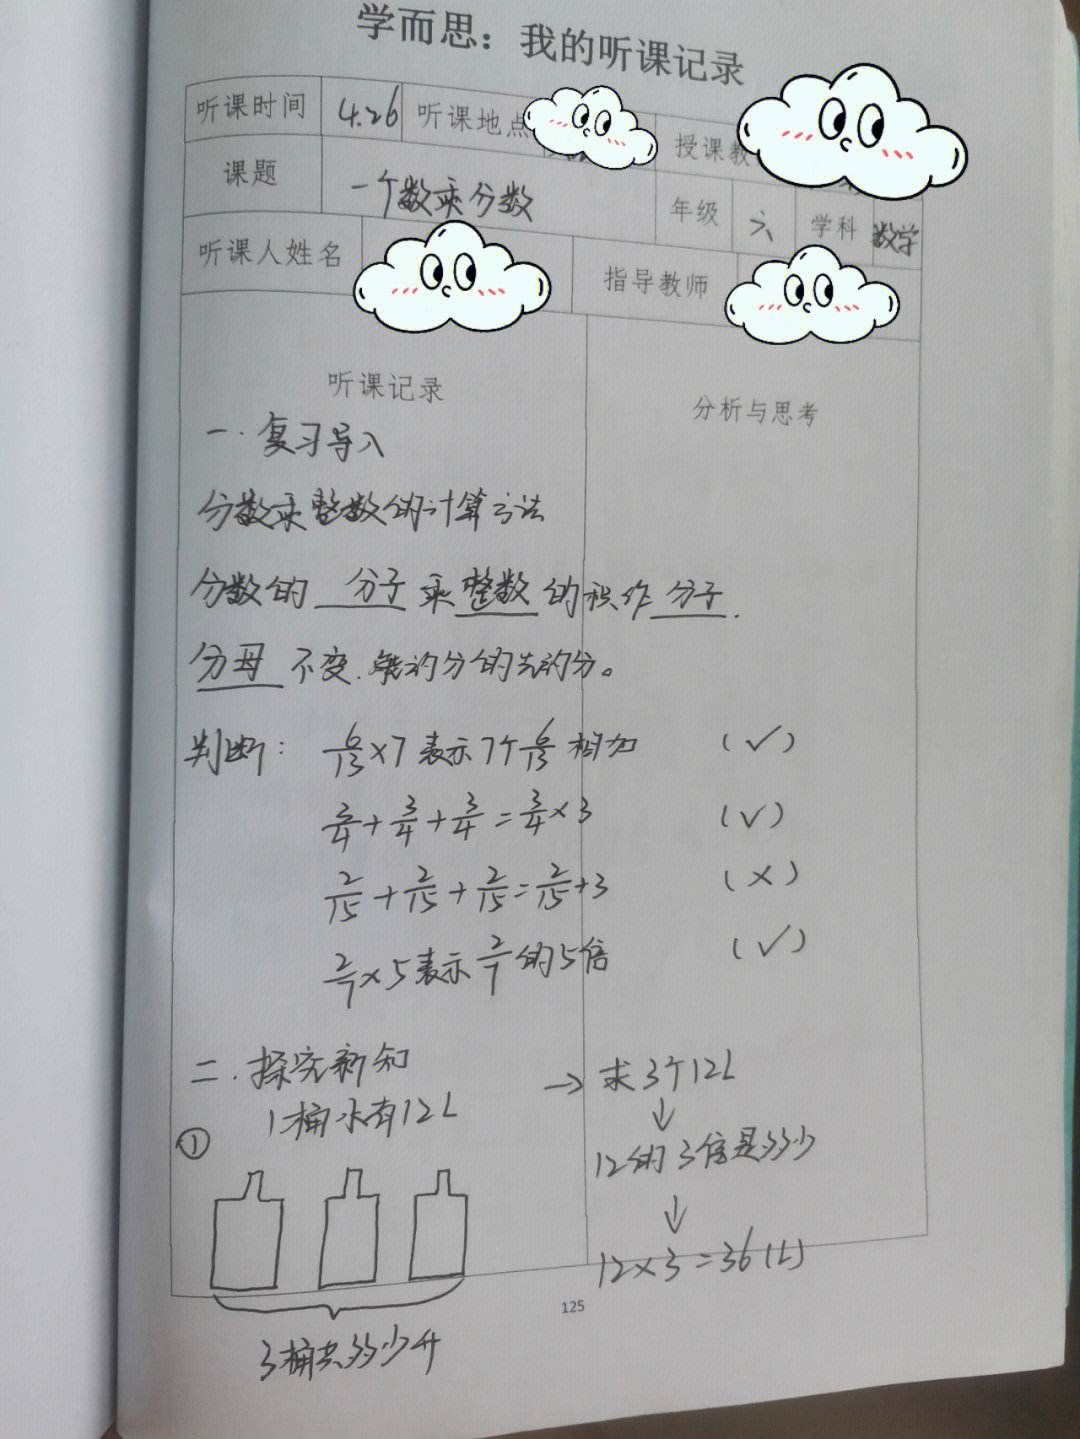 学而思：我的听课记录
听课时间 4.26 听课地点 授课教
课题 一个数乘分数 年级 六 学科 数学
听课人姓名 指导教师
听课记录 分析与思考
一.复习导入
分数乘整数的计算方法
分数的 分子 乘 整数 的积作 分子.
分母 不变.能约分的先约分。
判断: 6/13×7表示7个6/13相加 (√)
3/4+3/4+3/4=3/4×3 (√)
2/15+2/15+2/15=2/15+3 (×)
2/7×5表示2/7的5倍 (√)
二.探究新知 → 求3个12L
1桶水有12L ↓
① 12的3倍是多少
↓
12×3=36(L)
125
3桶共多少升